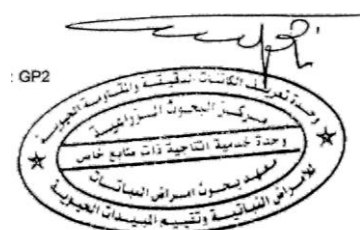 : GP2
وحدة تعريف الكائنات الدقيقة والمقاومة الحيوية
مركز البحوث الزراعية
وحدة خدمية انتاجية ذات طابع خاص
معهد بحوث امراض النباتات
للأمراض النباتية وتقييم المبيدات الحيوية